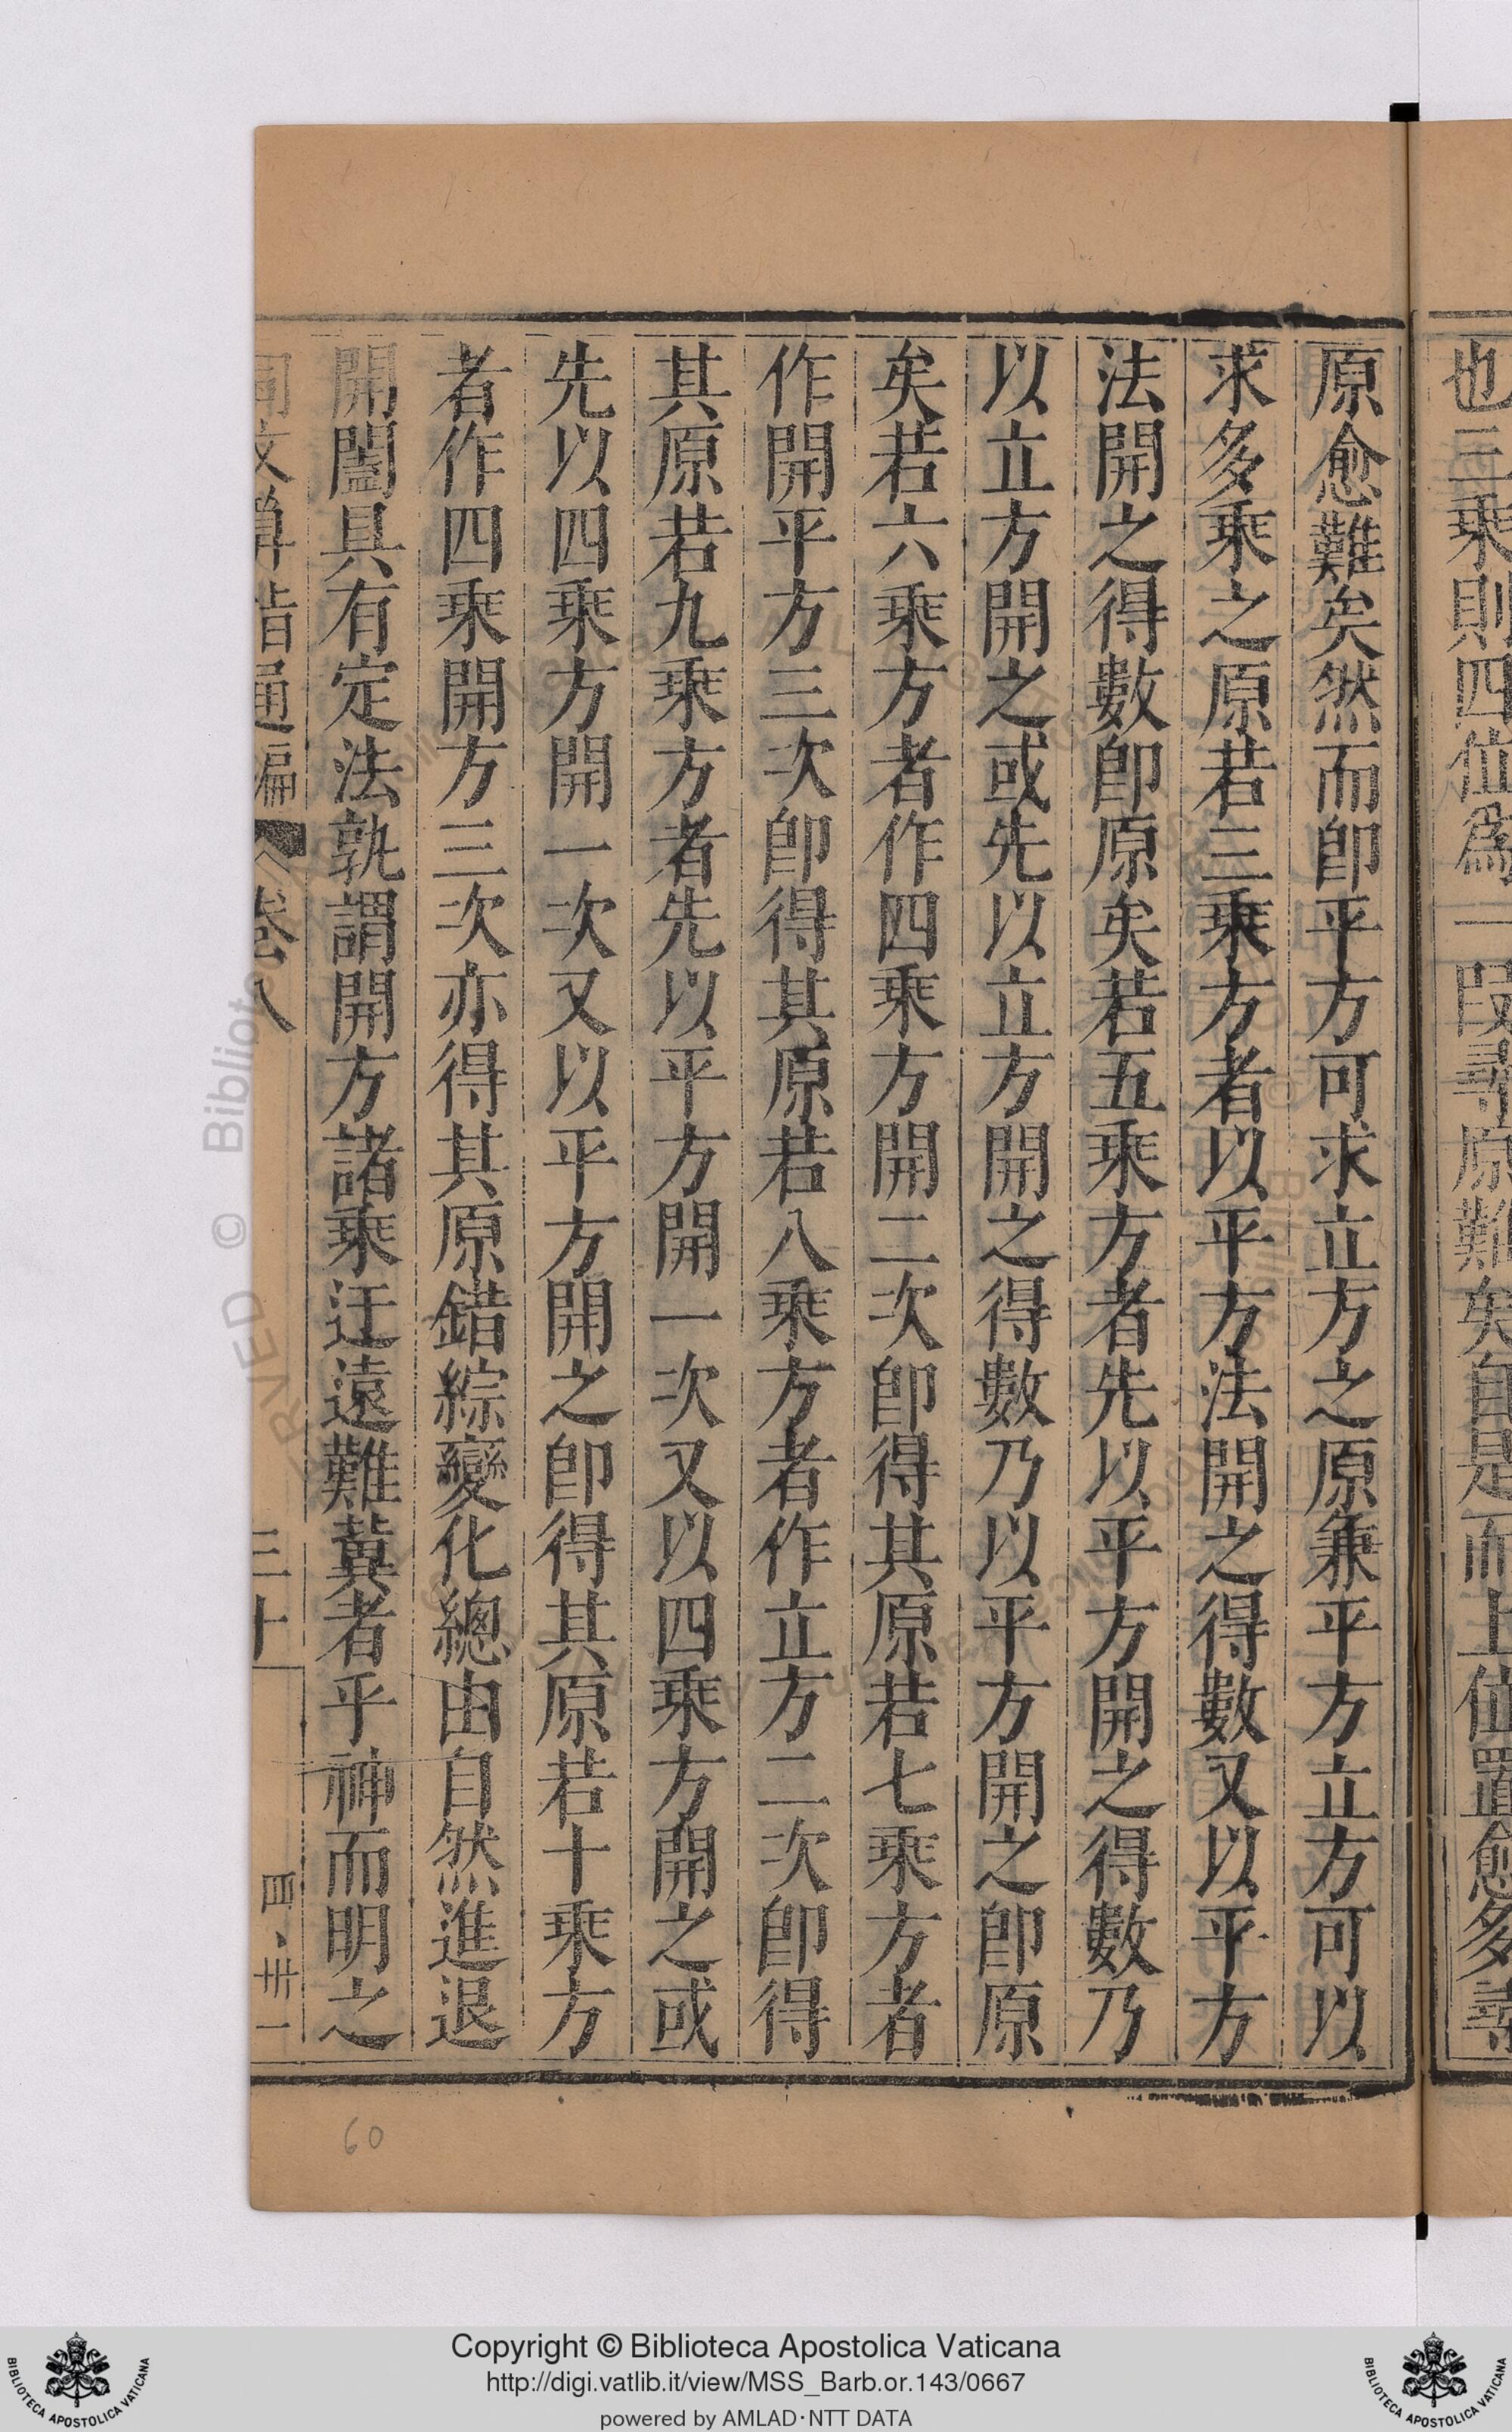 也三乘則四位爲一段尋原難矣自是而上位置愈多尋
原愈難矣然而卽平方可求立方之原兼平方立方可以
求多乘之原若三乘方者以平方法開之得數又以平方
法開之得數卽原矣若五乘方者先以平方開之得數乃
以立方開之或先以立方開之得數乃以平方開之卽原
矣若六乘方者作四乘方開二次卽得其原若七乘方者
作開平方三次卽得其原若八乘方者作立方二次卽得
其原若九乘方者先以平方開一次又以四乘方開之或
先以四乘方開一次又以平方開之卽得其原若十乘方
者作四乘開方三次亦得其原錯綜變化總由自然進退
開闔具有定法孰謂開方諸乘迂遠難冀者乎神而明之
同文算指通編 卷八 三十
60
© Biblioteca
Copyright © Biblioteca Apostolica Vaticana
http://digi.vatlib.it/view/MSS_Barb.or.143/0667
powered by AMLAD·NTT DATA
BIBLIOTECA APOSTOLICA VATICANA
BIBLIOTECA APOSTOLICA VATICANA